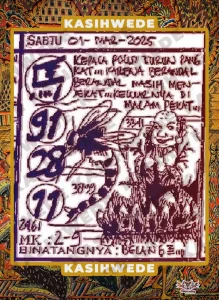 KASIHWEDE
SABTU 01-MAR-2025
KEPALA POLISI TURUN PANG
KAT... KARENA BERANDAL
BERANDAL MASIH MEN-
JERAT... KELUARNYA DI
MALAM PEKAT...
91
28
11
33-41
38-99
2961
MK : 2-9
BINATANGNYA : BELANG
KASIHWEDE